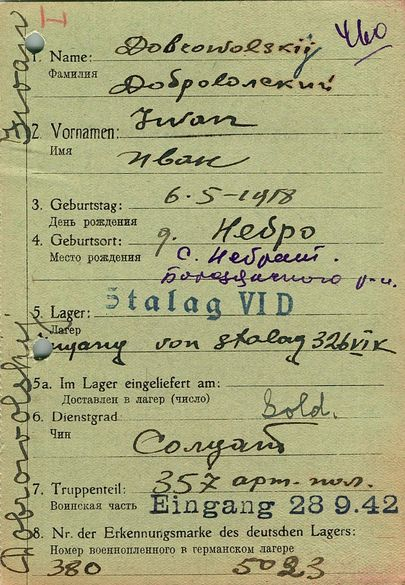 I
460
1. Name: Dobrowolskij
Фамилия
Добровольский
2. Vornamen: Iwan
Имя
Иван
3. Geburtstag: 6-5-1918
День рождения
4. Geburtsort: g. Небро
Место рождения с. Небрат.
Бородянского р-н.
5. Lager: Stalag VI D
Лагерь
Eingang von Stalag 326 VI K
5a. Im Lager eingeliefert am:
Доставлен в лагерь (число)
6. Dienstgrad Sold.
Чин
Солдат
7. Truppenteil: 357 арт. пол.
Воинская часть Eingang 28 9.42
8. Nr. der Erkennungsmarke des deutschen Lagers:
Номер военнопленного в германском лагере
380 5023
Dobrowolskij Iwan